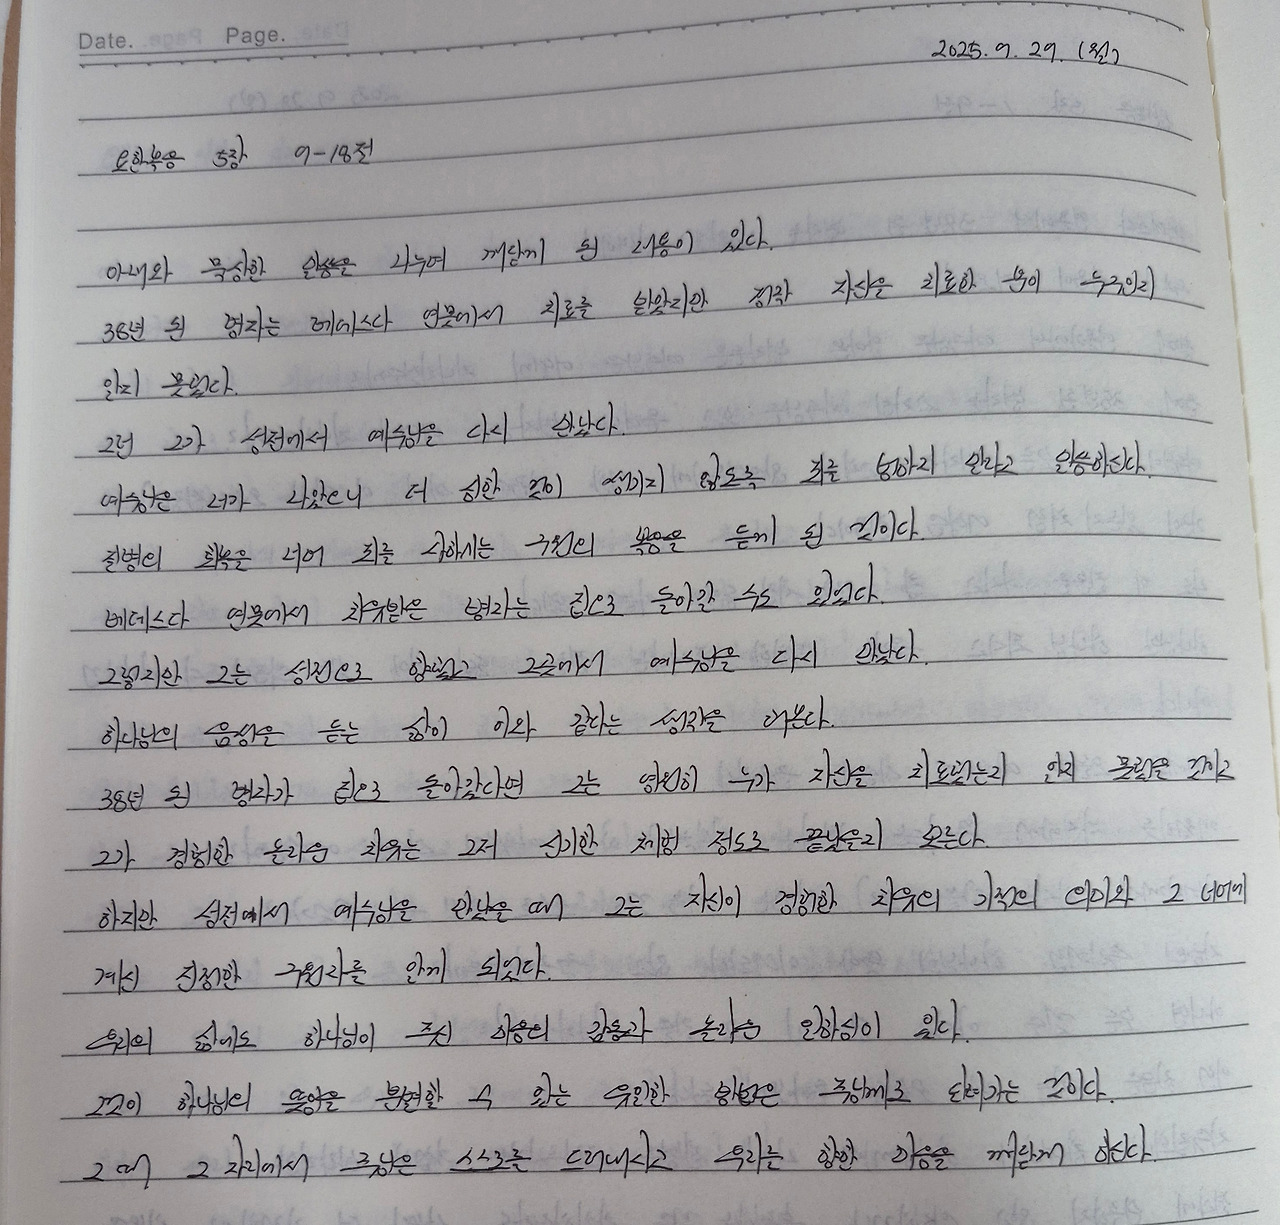 Date. Page.
2025. 9. 29. (월)
요한복음 5장 9-18절
아내와 묵상한 말씀을 나누며 깨닫게 된 내용이 있다.
38년 된 병자는 베데스다 연못에서 치료를 받았지만 정작 자신을 치료한 분이 누구인지
알지 못했다.
그런 그가 성전에서 예수님을 다시 만났다.
예수님은 너가 나았으니 더 심한 것이 생기지 않도록 죄를 범하지 말라고 말씀하신다.
질병의 회복을 넘어 죄를 사하시는 구원의 복음을 듣게 된 것이다.
베데스다 연못에서 치유받은 병자는 집으로 돌아갈 수도 있었다.
그렇지만 그는 성전으로 향했고 그곳에서 예수님을 다시 만났다.
하나님의 음성을 듣는 삶이 이와 같다는 생각을 해본다.
38년 된 병자가 집으로 돌아갔다면 그는 영원히 누가 자신을 치료했는지 알지 못했을 것이고
그가 경험한 놀라운 치유는 그저 신기한 체험 정도로 끝났을지 모른다.
하지만 성전에서 예수님을 만났을 때 그는 자신이 경험한 치유의 기적의 의미와 그 너머에
계신 진정한 구원자를 알게 되었다.
우리의 삶에도 하나님이 주신 마음의 감동과 놀라운 인하심이 있다.
그것이 하나님의 뜻임을 분별할 수 있는 유일한 방법은 주님께로 나아가는 것이다.
그 때 그 자리에서 주님은 스스로를 드러내시고 우리를 향한 마음을 깨닫게 하신다.